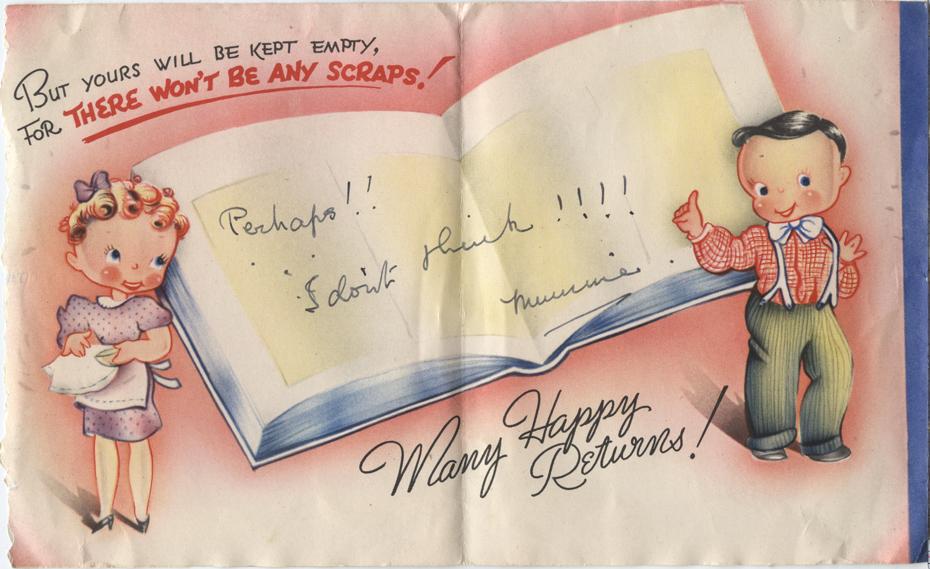 But yours will be kept empty,
For THERE WON'T BE ANY SCRAPS!
Perhaps!!
. . . I don't think !!!!
Mummie.
Many Happy
Returns!